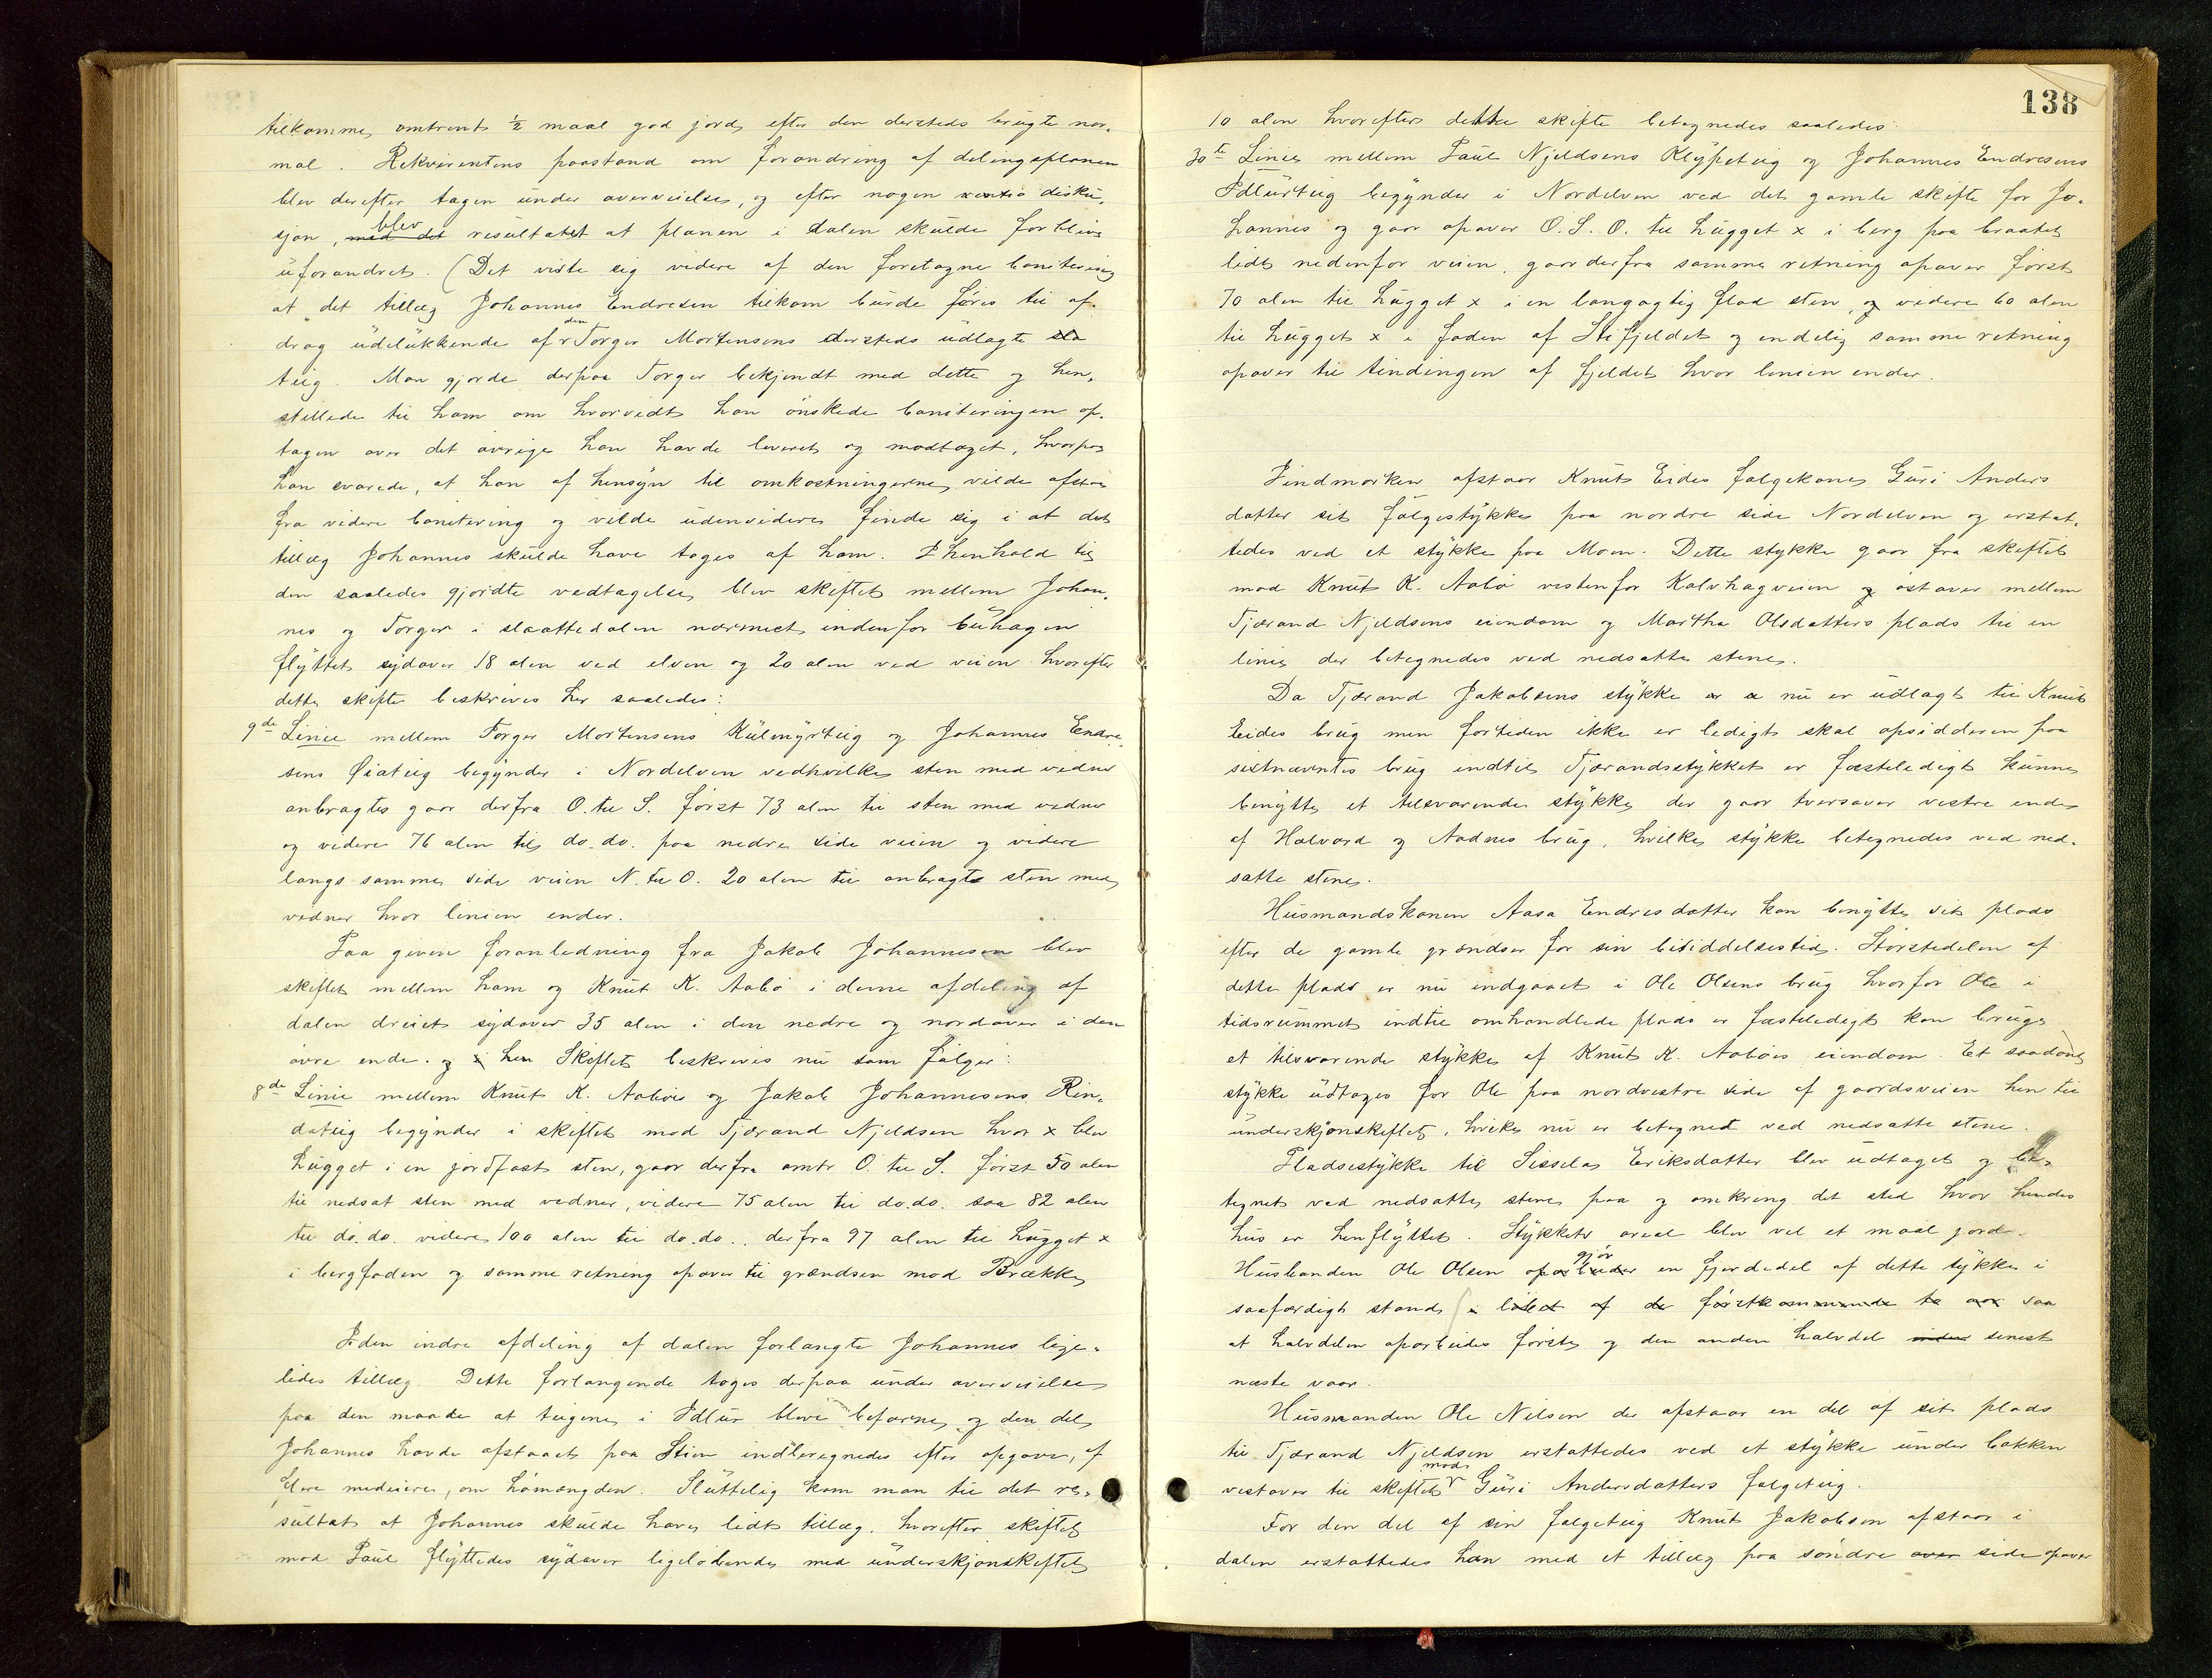 tilkomme omtrent ½ maal god jord efter den dersteds brugte nor-
mal. Rekvirentens paastand om forandring af delingsplanen
blev derefter tagen under overveielse, og efter nogen disku-
sjon, med det blev resultatet at planen i dalen skulde forblive
uforandret. (Det viste sig videre af den foretagne bonitering
at det tillæg Johannes Endresen tilkom burde føres til af-
drag udelukkende af den Torger Mortensens dersteds udlagte
teig. Man gjorde derpaa Torger bekjendt med dette og hen-
stillede til ham om hvorvidt han ønskede boniteringen op-
tagen over det øvrige han havde leveret og modtaget, hvorpaa
han svarede, at han af hensyn til omkostningerne vilde afstaa
fra videre bonitering og vilde udenvidere finde sig i at det
tillæg Johannes skulde have toges af ham. I henhold til
den saaledes gjordte vedtagelse blev skiftet mellem Johan-
nes og Torger i slaattedalen nærmest indenfor buhagen
flyttet sydover 18 alen ved elven og 20 alen ved veien hvorefter
dette skifte beskrives her saaledes:
9de Linie mellem Torger Mortensens Kulmyrteig og Johannes Endre-
sens Øiateig begynder i Nordelven vedhvilke sten med vidner
anbragtes gaar derfra O. til S. først 73 alen til sten med vidner
og videre 76 alen til do. do. paa nedre side veien og videre
langs samme side veien N. til O. 20 alen til anbragt sten med
vidner hvor linien ender.
Paa given foranledning fra Jakob Johannesen blev
skiftet mellem ham og Knut K. Aabø i denne afdeling af
dalen dreiet sydover 35 alen i den nedre og nordover i den
øvre ende. og Skiftet beskrives nu som følger:
8de Linie mellem Knut K. Aabøes og Jakob Johannesens Rin-
dateig begynder i skiftet mod Tjærand Njeldsen hvor x blev
hugget i en jordfast sten, gaar derfra omtr O. til S. først 50 alen
til nedsat sten med vidner, videre 75 alen til do. do. saa 82 alen
til do. do. videre 100 alen til do. do. derfra 97 alen til hugget x
i bergfoden og samme retning opover til grændsen mod Brække
I den indre afdeling af dalen forlangte Johannes lige-
ledes tillæg. Dette forlangende toges derpaa under overveielse
paa den maade at teigene i Idlur bleve befarne og den del
Johannes havde afstaaet paa Stien indberegnedes efter opgave, af
flere medeiere, om hømængden. Sluttelig kom man til det re-
sultat at Johannes skulde have lidt tillæg. hvorefter skiftet
mod Paul flyttedes sydover ligeløbende med underskjønskiftet
138
10 alen hvorefter dette skifte betegnedes saaledes:
30te Linie mellem Paul Njeldsens Klypeteig og Johannes Endresens
Idlurteig begynder i Nordelven ved det gamle skifte for Jo-
hannes og gaar opover O. S. O. til hugget x i berg paa braatet
lidt nedenfor veien, gaar derfra samme retning opover først
70 alen til hugget x i en langagtig flad sten, og videre 60 alen
til hugget x i foden af Stifjeldet og endelig samme retning
opover til tindingen af fjeldet hvor linien ender.
I indmarken afstaar Knut Eides følgekone Guri Anders
datter sit følgestykke paa nordre side Nordelven og erstat-
tedes ved et stykke paa Moen. Dette stykke gaar fra skiftet
mod Knut K. Aabø vestenfor Kalvhagveien og østover mellem
Tjærand Njeldsens eiendom og Martha Olsdatters plads til en
linie der betegnedes ved nedsatte stene.
Da Tjærand Jakobsens stykke nu er udlagt til Knut
Eides brug men fortiden ikke er ledigt skal opsidderen paa
sistnævntes brug indtil Tjærandsstykket er fæsteledigt kunne
benytte et tilsvarende stykke der gaar tversover vestre ende
af Halvard og Aadnes brug, hvilke stykke betegnedes ved ned-
satte stene.
Husmandskonen Aasa Endresdatter kan benytte sit plads
efter de gamle grændser for sin besiddelsestid. Størstedelen af
dette plads er nu indgaaet i Ole Olsens brug hvorfor Ole i
tidsrummet indtil omhandlede plads er fæsteledigt kan bruge
et tilsvarende stykke af Knut K. Aabøes eiendom. Et saadant
stykke udtoges for Ole paa nordvestre side af gaardsveien hen til
underskjønskiftet, hvilke nu er betegnet ved nedsatte stene.
Pladsestykke til Sissela Eriksdatter blev udtaget og be-
tegnet ved nedsatte stene paa og omkring det sted hvor hendes
hus er henflyttet. Stykkets areal blev vel et maal jord.
Husbonden Ole Olsen oparbeider gjør en fjerdedel af dette stykke i
saafærdigt stand i løbet af de førstkommende to aar saa
at halvdelen oparbeides først og den anden halvdel inden senest
næste vaar.
Husmanden Ole Nilsen der afstaar en del af sit plads
til Tjærand Njeldsen erstattedes ved et stykke under bakken
vestover til skiftet mod Guri Andersdatters følgeteig.
For den del af sin følgeteig Knut Jakobsen afstaar i
dalen erstattedes han med et tillæg paa søndre over side opover